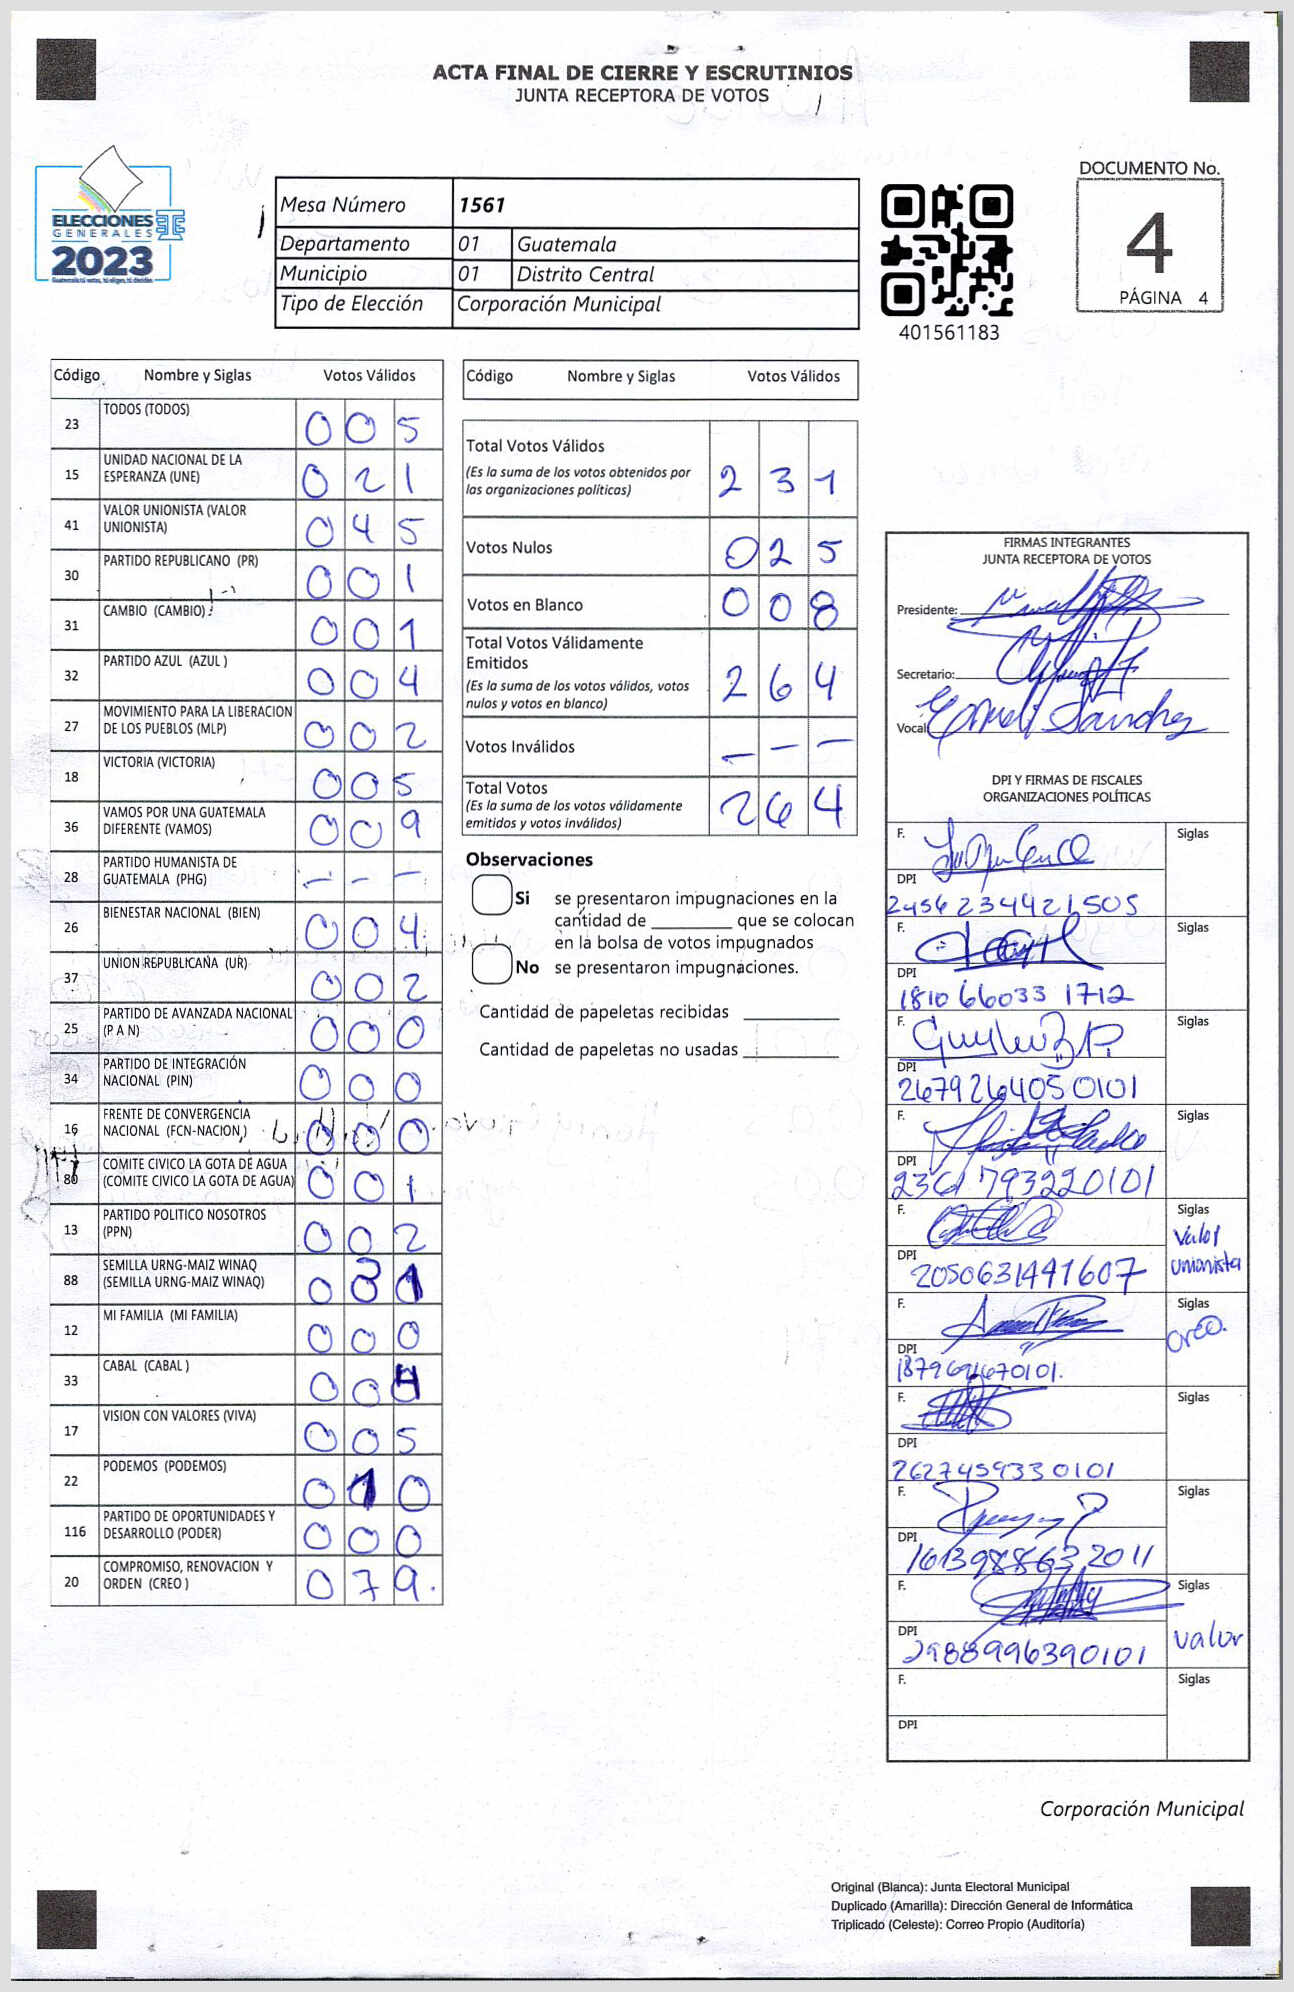 ACTA FINAL DE CIERRE Y ESCRUTINIOS
JUNTA RECEPTORA DE VOTOS
ELECCIONES
GENERALES
2023
Mesa Número 1561
Departamento 01 Guatemala
Municipio 01 Distrito Central
Tipo de Elección Corporación Municipal
401561183
DOCUMENTO No.
4
PÁGINA 4
Código Nombre y Siglas Votos Válidos
23 TODOS (TODOS) 0 0 5
15 UNIDAD NACIONAL DE LA ESPERANZA (UNE) 0 2 1
41 VALOR UNIONISTA (VALOR UNIONISTA) 0 4 5
30 PARTIDO REPUBLICANO (PR) 0 0 1
31 CAMBIO (CAMBIO) 0 0 1
32 PARTIDO AZUL (AZUL ) 0 0 4
27 MOVIMIENTO PARA LA LIBERACION DE LOS PUEBLOS (MLP) 0 0 2
18 VICTORIA (VICTORIA) 0 0 5
36 VAMOS POR UNA GUATEMALA DIFERENTE (VAMOS) 0 0 9
28 PARTIDO HUMANISTA DE GUATEMALA (PHG) - - -
26 BIENESTAR NACIONAL (BIEN) 0 0 4
37 UNION REPUBLICANA (UR) 0 0 2
25 PARTIDO DE AVANZADA NACIONAL (P A N) 0 0 0
34 PARTIDO DE INTEGRACIÓN NACIONAL (PIN) 0 0 0
16 FRENTE DE CONVERGENCIA NACIONAL (FCN-NACION ) 0 0 0
80 COMITE CIVICO LA GOTA DE AGUA (COMITE CIVICO LA GOTA DE AGUA) 0 0 1
13 PARTIDO POLITICO NOSOTROS (PPN) 0 0 2
88 SEMILLA URNG-MAIZ WINAQ (SEMILLA URNG-MAIZ WINAQ) 0 3 1
12 MI FAMILIA (MI FAMILIA) 0 0 0
33 CABAL (CABAL ) 0 0 4
17 VISION CON VALORES (VIVA) 0 0 5
22 PODEMOS (PODEMOS) 0 1 0
116 PARTIDO DE OPORTUNIDADES Y DESARROLLO (PODER) 0 0 0
20 COMPROMISO, RENOVACION Y ORDEN (CREO ) 0 7 9.
Código Nombre y Siglas Votos Válidos
Total Votos Válidos 2 3 1
(Es la suma de los votos obtenidos por
las organizaciones políticas)
Votos Nulos 0 2 5
Votos en Blanco 0 0 8
Total Votos Válidamente
Emitidos 2 6 4
(Es la suma de los votos válidos, votos
nulos y votos en blanco)
Votos Inválidos - - -
Total Votos 2 6 4
(Es la suma de los votos válidamente
emitidos y votos inválidos)
Observaciones
Si se presentaron impugnaciones en la
cantidad de ________ que se colocan
en la bolsa de votos impugnados
No se presentaron impugnaciones.
Cantidad de papeletas recibidas
Cantidad de papeletas no usadas
FIRMAS INTEGRANTES
JUNTA RECEPTORA DE VOTOS
Presidente:
Secretario:
Vocal: Sanchez
DPI Y FIRMAS DE FISCALES
ORGANIZACIONES POLÍTICAS
F. Siglas
DPI 2456234421505
F. Siglas
DPI 1810 66033 1712
F. Siglas
DPI 2679264050101
F. Siglas
DPI 2361793220101
F. Siglas Valor Unionista
DPI 2050631441607
F. Siglas Creo.
DPI 1879691670101.
F. Siglas
DPI 2627459330101
F. Siglas
DPI 1613988632011
F. Siglas Valor
DPI 2988996390101
F. Siglas
DPI
Corporación Municipal
Original (Blanca): Junta Electoral Municipal
Duplicado (Amarilla): Dirección General de Informática
Triplicado (Celeste): Correo Propio (Auditoría)